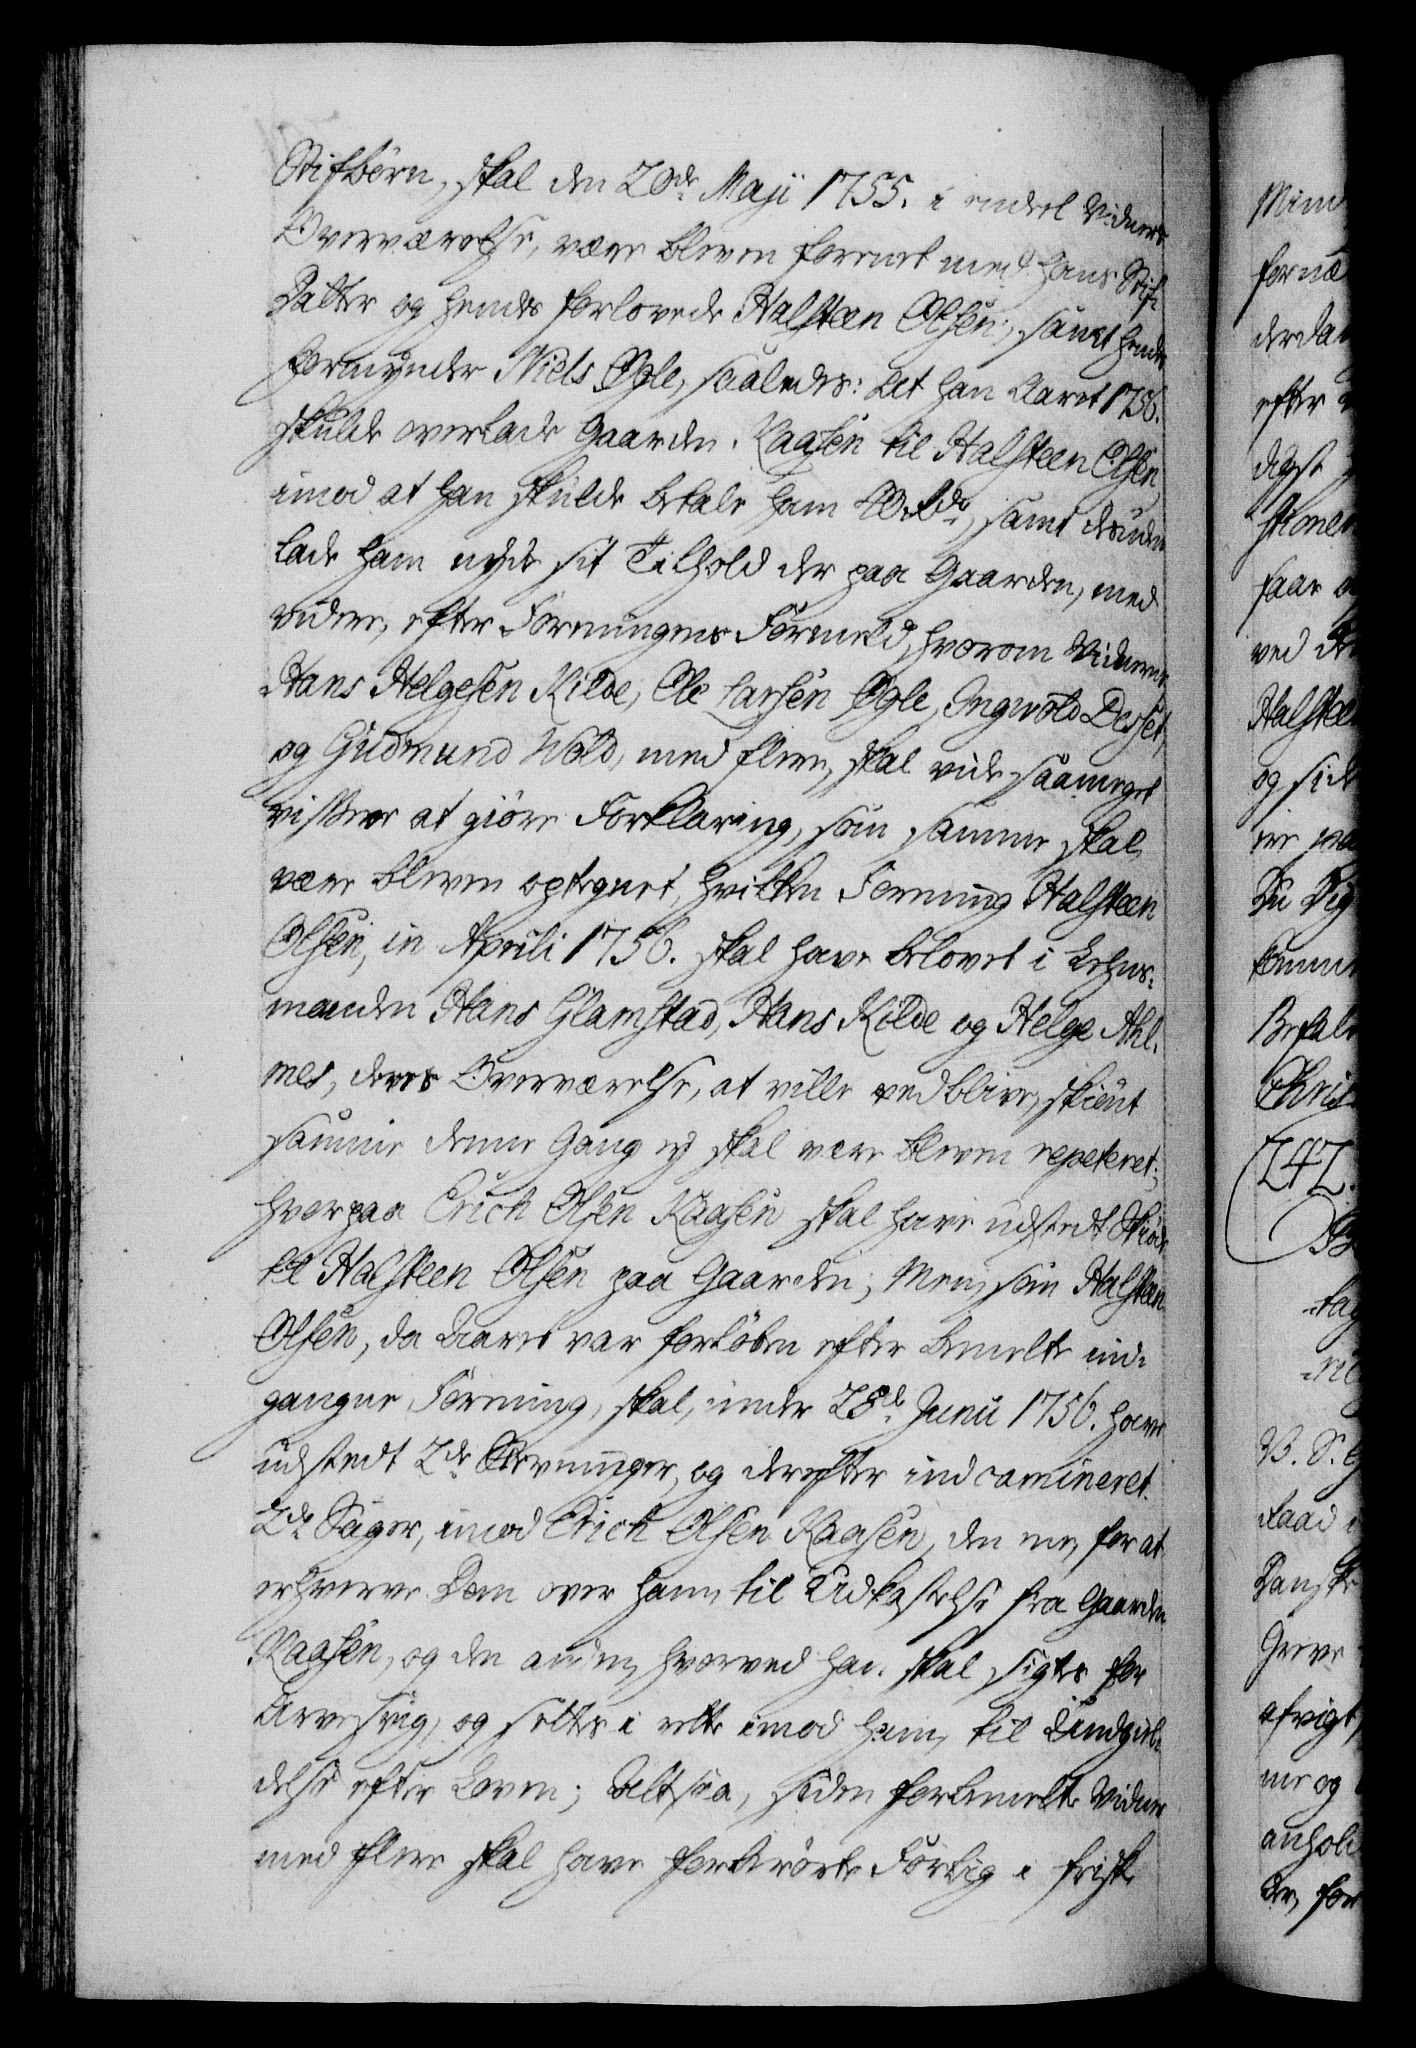 Stifbørn, skal den 20de Maji 1755. i endeel Vidners
Overværelse, være bleven foreenet med hans Stif-
Datter og hendes forlovede Halsteen Olsen, samt hendes
Formynder Niels Ogle, saaledes: At han Aaret 1756.
skulde overlade Gaarden Kaasen til Halsteen Olsen,
imod at han skulde betale ham 40 Rdr, samt desuden
lade ham nyde sit Tilhold der paa Gaarden, med
videre, efter Foreningens Formeld, hvorom Vidnerne
Hans Helgesen Kilde, Ole Larsen Ogle, Ingwold Desset,
og Gudmund Wold, med flere, skal vide saameget
vissere at giøre Forklaring, som samme skal
være bleven optegnet, hvilken Forening Halsteen
Olsen, in Aprili 1756. skal have belovet i Lehns-
manden Hans Glamstad, Hans Kilde og Helge Ahl-
mes, deres Overværelse, at ville vedblive, skiønt
samme denne Gang ey skal være bleven repeteret;
hvorpaa Erich Olsen Kaasen skal have udstedt Skiøde
til Halsteen Olsen paa Gaarden; Men, som Halsteen
Olsen, da Aaret var forløben efter bemelte ind-
gangne Forening, skal, under 28de Junii 1756. have
udstedt 2de Stevninger, og derefter incamineret
2de Sager, imod Erich Olsen Kaasen, den ene, for at
erhverve Dom over ham til Udkastelse fra Gaarden
Kaasen, og den anden, hvorved han skal sigtes for
Arvesvig, og settes i rette imod ham, til Undgiel-
delse efter Loven; Altsaa, siden forbemelte Vidner
med flere skal have forberørte Forlig i frisk
Mind
fornæ
derdan
efter
digst
faar
ved
Halsteen
og side
Du Dig
komme
Befale
Christ
242.
B. S. G
Raad
Danske
Greve
afvigt
ne og
anhol
der, for